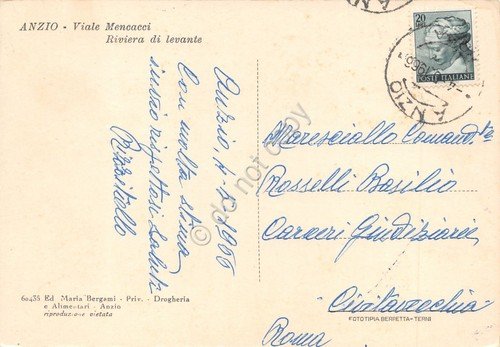 ANZIO - Viale Mencacci
Riviera di levante
Anzio, 4 1966
Con molta stima
invio rispettosi saluti
60435 Ed Maria Bergami - Priv. - Drogheria
e Alimentari - Anzio
riproduzione vietata
20
POSTE ITALIANE
ANZIO
1966
Maresciallo Comand.te
Rosselli Basilio
Carceri Giudiziarie
Civitavecchia
FOTOTIPIA BERRETTA-TERNI
Roma
do not copy